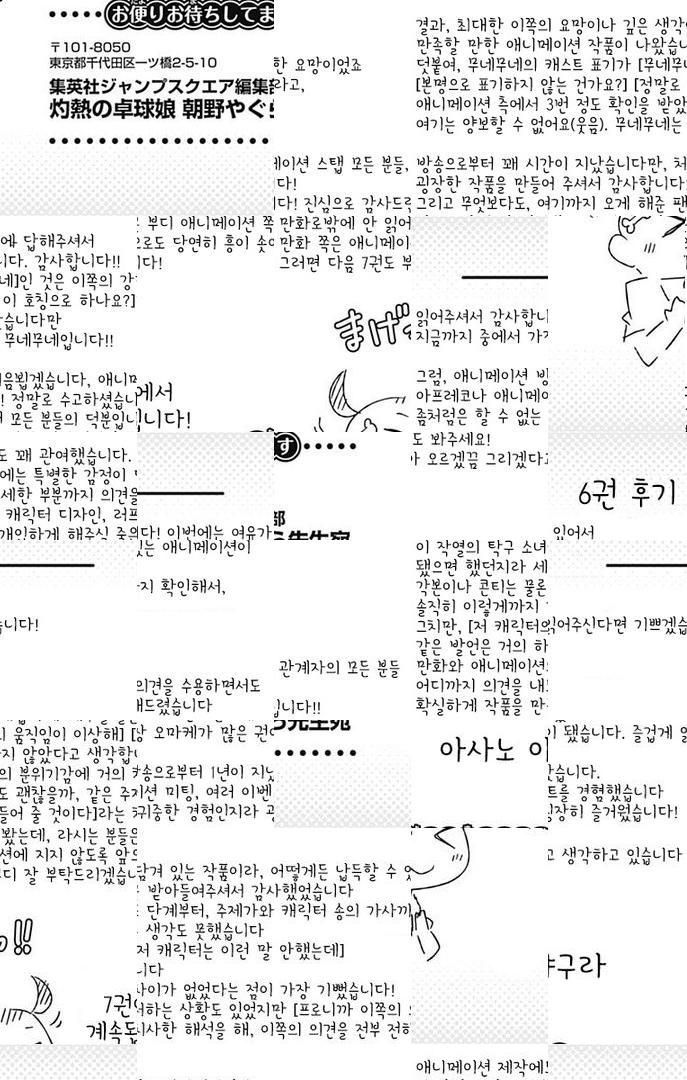 お便りお待ちしてま
〒101-8050
東京都千代田区一ツ橋2-5-10
集英社ジャンプスクエア編集
灼熱の卓球娘 朝野やぐ
한 요망이었죠
라고,
결과, 최대한 이쪽의 요망이나 깊은 생각
만족할 만한 애니메이션 작품이 나왔습니
덧붙여, 무네무네의 캐스트 표기가 [무네무
[본명으로 표기하지 않는 건가요?] [정말로
애니메이션 측에서 3번 정도 확인을 받았
여기는 양보할 수 없어요(웃음). 무네무네는
이션 스탭 모든 분들,
다!
다! 진심으로 감사드
방송으로부터 꽤 시간이 지났습니다만, 처
굉장한 작품을 만들어 주셔서 감사합니다
그리고 무엇보다도, 여기까지 오게 해준 팬
부디 애니메이션 쪽
로도 당연히 흥이 솟
다!
만화로밖에 안 읽어
만화 쪽은 애니메이
그러면 다음 7권도 부
에 답해주셔서
니다. 감사합니다!!
네]인 것은 이쪽의 강
이 호칭으로 하나요?]
습니다만
무네무네입니다!!
음뵙겠습니다, 애니메
! 정말로 수고하셨습니
모든 분들의 덕분입니
에서
니다!
まげ
읽어주셔서 감사합니
지금까지 중에서 가
그럼, 애니메이션 방
아프레코나 애니메이
좀처럼은 할 수 없는
도 봐주세요!
오르겠끔 그리겠다
도 꽤 관여했습니다.
에는 특별한 감정이
세한 부분까지 의견을
캐릭터 디자인, 러프
개입하게 해주신 중의
다! 이번에는 여유가
는 애니메이션이
지 확인해서,
す
6권 후기
있어서
습니다!
의견을 수용하면서도
해드렸습니다
관계자의 모든 분들
니다!!
이 작열의 탁구 소녀
됐으면 했던지라 세
각본이나 콘티는 물론
솔직히 이렇게까지
그치만, [저 캐릭터의
같은 발언은 거의 하
만화와 애니메이션
어디까지 의견을 내
확실하게 작품을 만
읽어주신다면 기쁘겠습
의 움직임이 이상해] [
지 않았다고 생각합
의 분위기감에 거의
도 괜찮을까, 같은 주
들어 줄 것이다]라는
봤는데, 라시는 분들은
션에 지지 않도록 앞으
디 잘 부탁드리겠습니
오마케가 많은 권
송으로부터 1년이 지났
이션 미팅, 여러 이벤
귀중한 경험인지라
아사노 야
이 됐습니다. 즐겁게 읽
습니다.
트를 경험했습니다
굉장히 즐거웠습니다!
고 생각하고 있습니다
담겨 있는 작품이라, 어떻게든 납득할 수
받아들여주셔서 감사했었습니다
단계부터, 주제가와 캐릭터 송의 가사까
생각도 못했습니다
저 캐릭터는 이런 말 안했는데]
니다
사이가 없었다는 점이 가장 기뻤습니다!
하는 상황도 있었지만 [프로니까 이쪽의
시사한 해석을 해, 이쪽의 의견을 전부 전하
야구라
!!
7권
계속됩
애니메이션 제작에